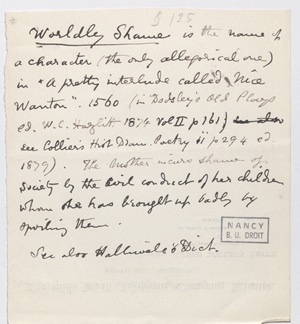 § 135
Worldly Shame is the name of
a character (the only allegorical one)
in "A pretty interlude called Nice
Wanton". 1560 (in Dodsley's Old Plays
ed. W. C. Hazlitt 1874 Vol II p 161) see also
see Collier's Hist Dram. Poetry ii p 294 ed.
1879). The Mother incurs shame of
Society by the Evil conduct of her children
whom she has brought up badly by
spoiling them.
See also Halliwell's Dict.
NANCY
B. U. DROIT